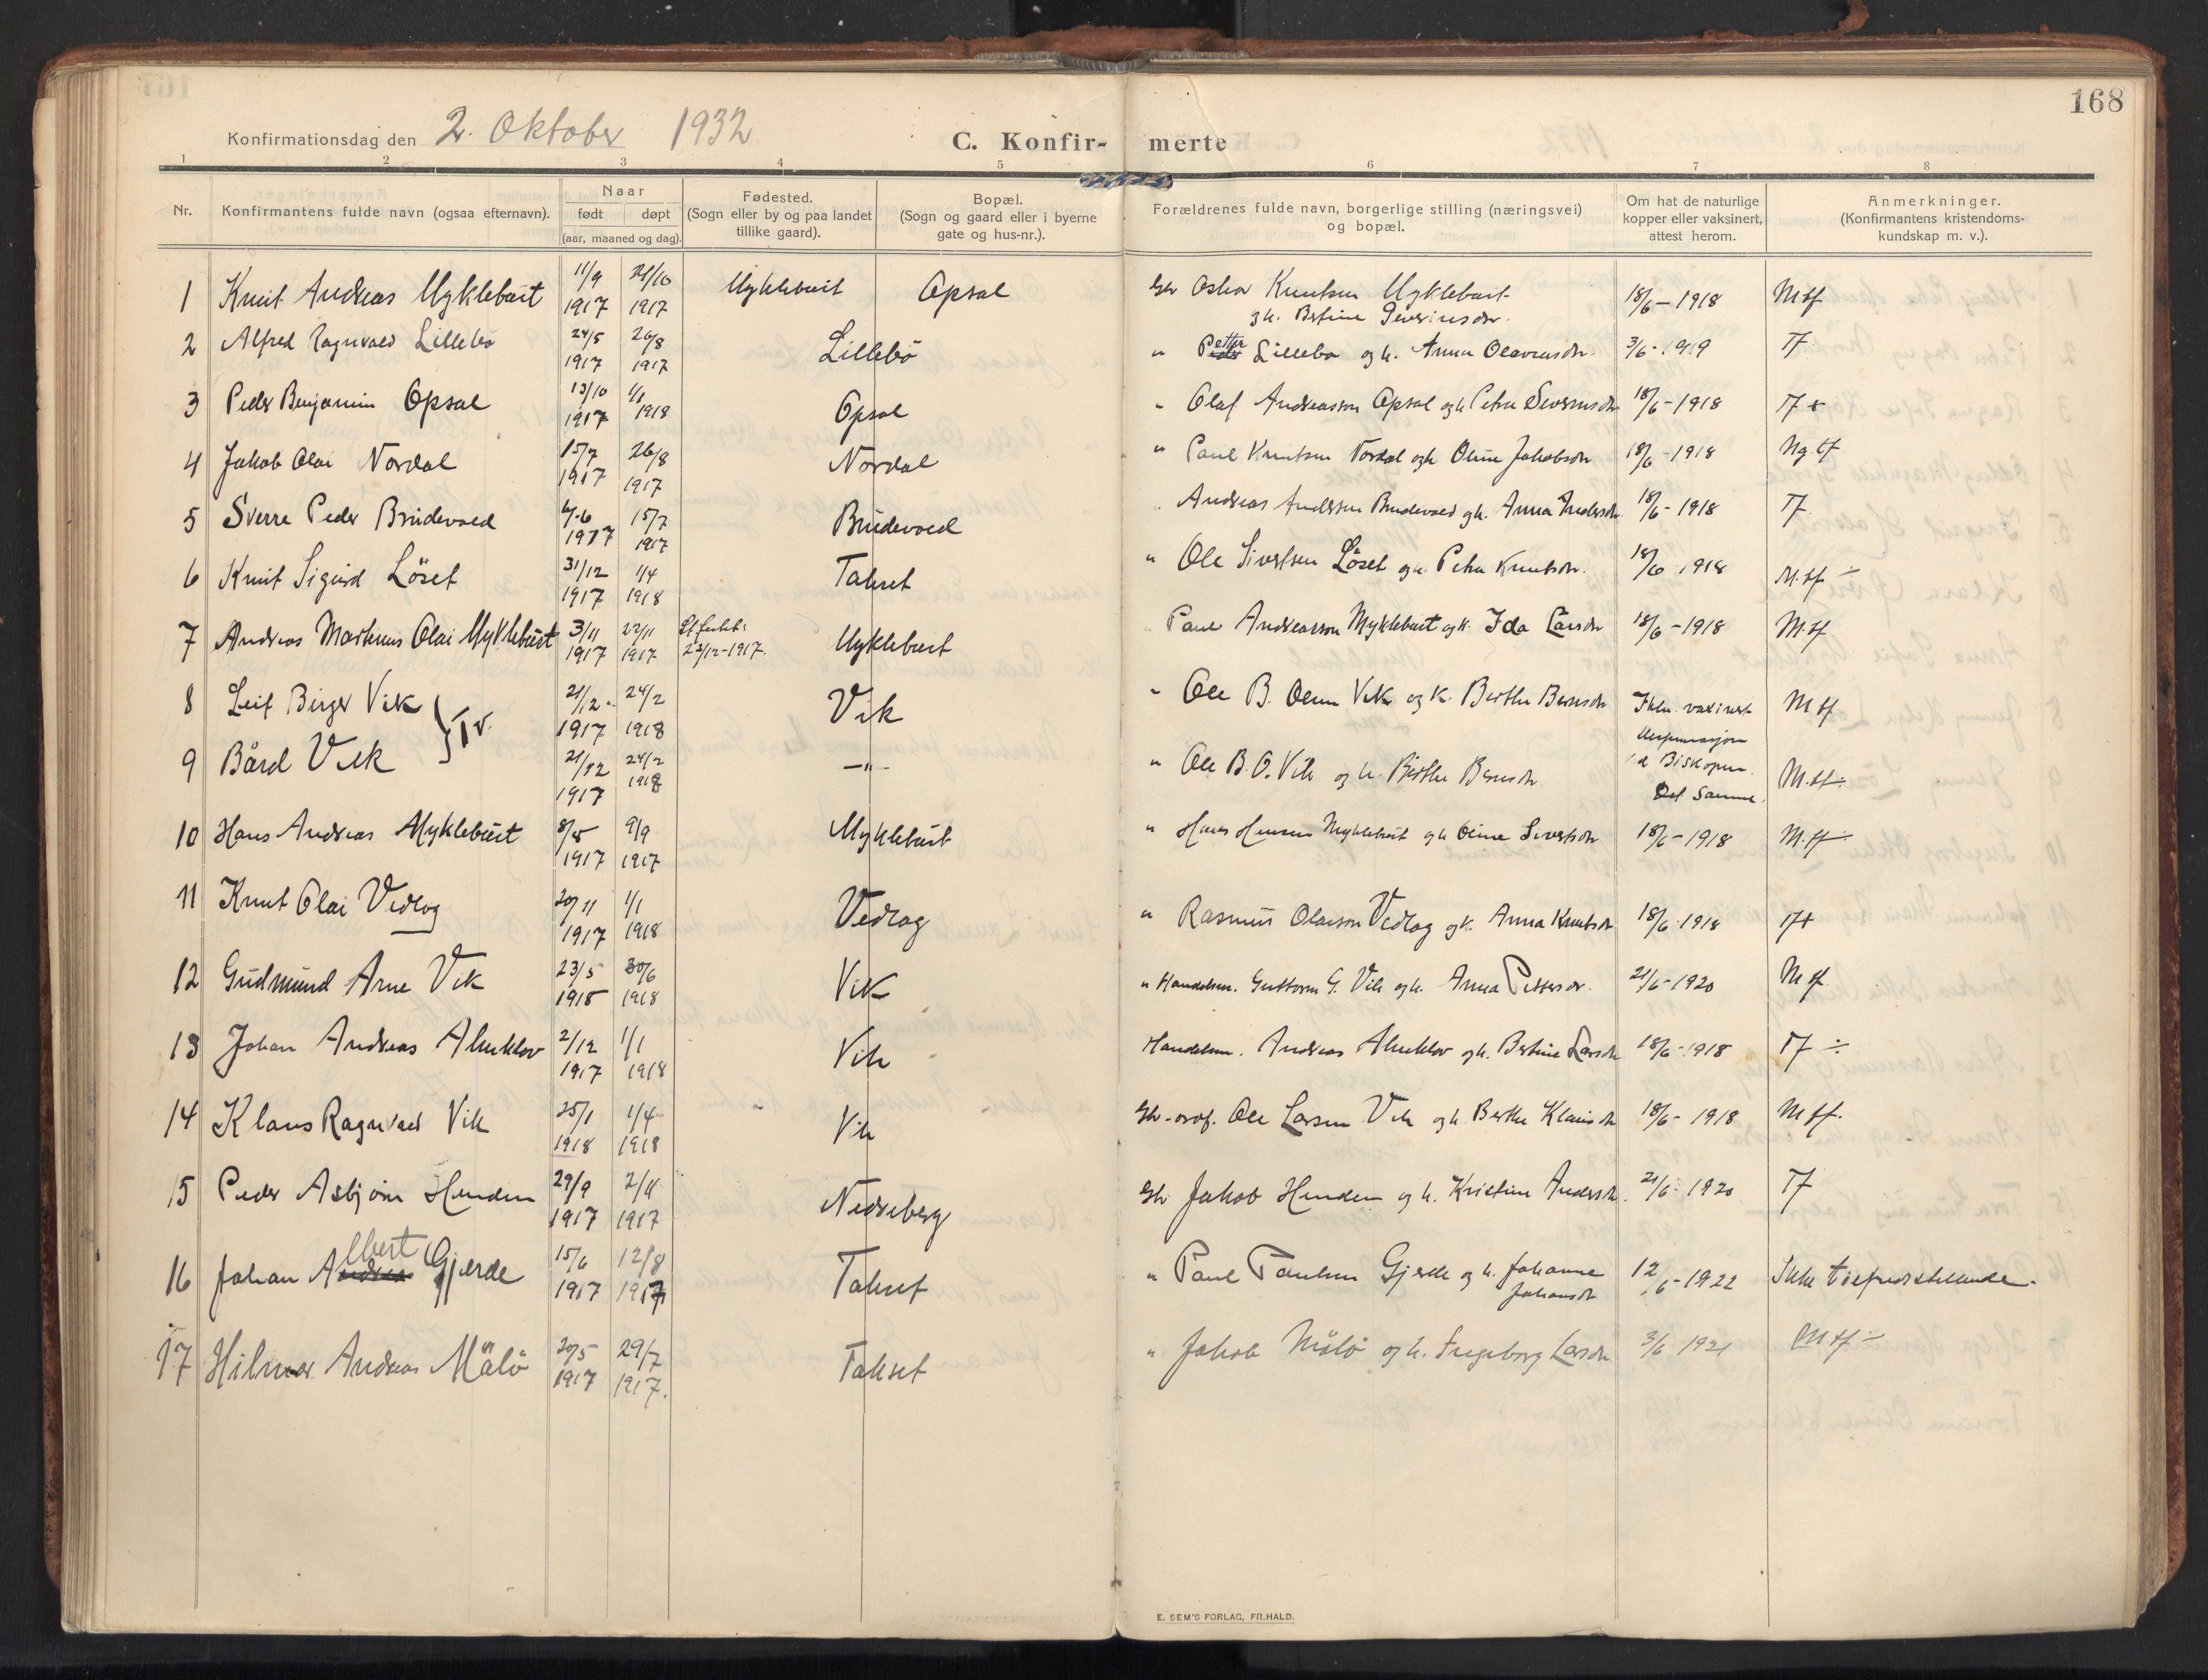 168
Konfirmationsdag den 2. Oktober 1932
C. Konfirmerte
1 2 3 4 5 6 7 8
Nr.
Konfirmantens fulde navn (ogsaa efternavn).
Naar
født døpt
(aar, maaned og dag).
Fødested.
(Sogn eller by og paa landet
tillike gaard).
Bopæl.
(Sogn og gaard eller i byerne
gate og hus-nr.).
Forældrenes fulde navn, borgerlige stilling (næringsvei)
og bopæl.
Om hat de naturlige
kopper eller vaksinert,
attest herom.
Anmerkninger.
(Konfirmantens kristendoms-
kundskap m. v.).
1 Knut Andreas Myklebust 11/9 1917 21/10 1917 Myklebust Opsal Gbr Oskar Knutsen Myklebust
og h. Bertine Severinsdr. 18/6-1918 Mtf
2 Alfred Ragnvald Lillebö 24/5 1917 26/8 1917 Lillebö " Petter Lillebö og h. Anna Olavensdr. 3/6-1919 Tf
3 Peder Benjamin Opsal 13/10 1917 1/1 1918 Opsal " Olaf Andreasson Opsal og h Petra Severinsdr 18/6-1918 Tf +
4 Jakob Olai Nordal 15/7 1917 26/8 1917 Nordal " Paul Knutsen Nordal og h Oline Jakobsdr 18/6-1918 Ng tf
5 Sverre Peder Brudevold 4-6 1917 15/7 1917 Brudevold " Andreas Andersen Brudevold og h. Anna Andersdr 18/6-1918 Tf
6 Knut Sigurd Löset 31/12 1917 1/4 1918 Takset " Ole Sivertsen Löset og h. Petra Knutsdr. 18/6 1918 M.tf ÷
7 Andreas Markus Olai Myklebust 3/11 1917 22/11 1917 23/12-1917. Myklebust Paul Andreasson Myklebust og h. Ida Larsdr 18/6-1918 M.tf
8 Leif Birger Vik } Tv. 21/12. 1917 24/2 1918 Vik " Ole B. Olsen Vik og h. Berthe Berntsdr Ikke vaxinert
Dispensasjon
Biskopen. M tf
9 Bård Vik 21/12 1917 24/2 1918 —"— " Ole B. O. Vik og h. Berthe Berntsdr Det samme. M.tf.
10 Hans Andreas Myklebust 8/5 1917 9/9 1917 Myklebust " Hans Hansen Myklebust og h Oline Sivertsdr 18/6-1918 M.tf
11 Knut Olai Vedlog 20/11 1917 1/1 1918 Vedlog " Rasmus Olaison Vedlog og h. Anna Knutsdr 18/6 1918 Tf+
12 Gudmund Arne Vik 23/5 1918 30/6 1918 Vik " Handelsm. Guttorm G. Vik og h. Anna Pettersdr. 21/6-1920 M tf
13 Johan Andreas Almklov 2/12 1917 1/1 1918 Vik Handelsm. Andreas Almklov og h. Bertine Larsdr 18/6-1918 Tf ÷
14 Klaus Ragnvald Vik 25/1 1918 1/4 1918 " Vik Gbr. Ole Larsen Vik og h Berthe Klausdr 18/6-1918 M tf.
15 Peder Asbjörn Henden 29/9 1917 2/11 1917 Nedreberg Gbr Jakob Henden og h. Kristine Andersdr. 21/6-1920 Tf
16 Johan Albert Gjerde 15/6 1917 12/8 1917 Takset " Paul Paulsen Gjerde og h. Johanne
Johansdr 12/6-1922 Ikke tilfredsstillende.
17 Hilmar Andreas Målö 20/5 1917 29/7 1917. Takset " Jakob Målö og h. Ingeborg Larsdr 3/6 1921 Mtf ÷
E. SEM'S FORLAG, FR.HALD.